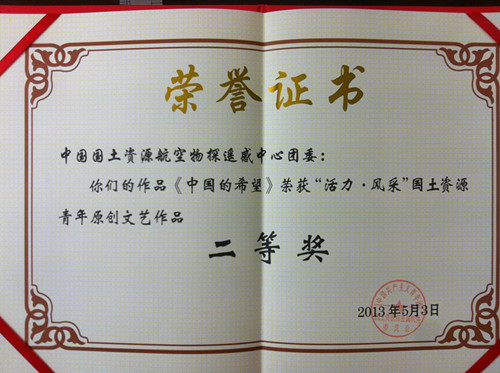 荣誉证书
中国国土资源航空物探遥感中心团委：
你们的作品《中国的希望》荣获“活力·风采”国土资源
青年原创文艺作品
二等奖
2013年5月3日